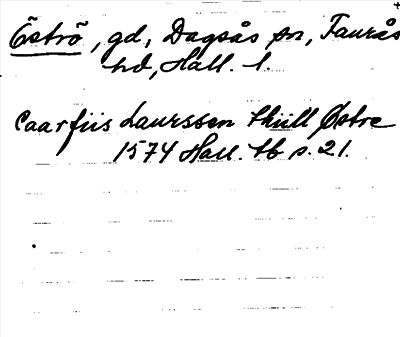 Öströ, gd, Dagsås sn, Faurås
hd, Hall. l.
Caarfüs Laurssen Sküll Østre
1574 Hall. tb s. 21.